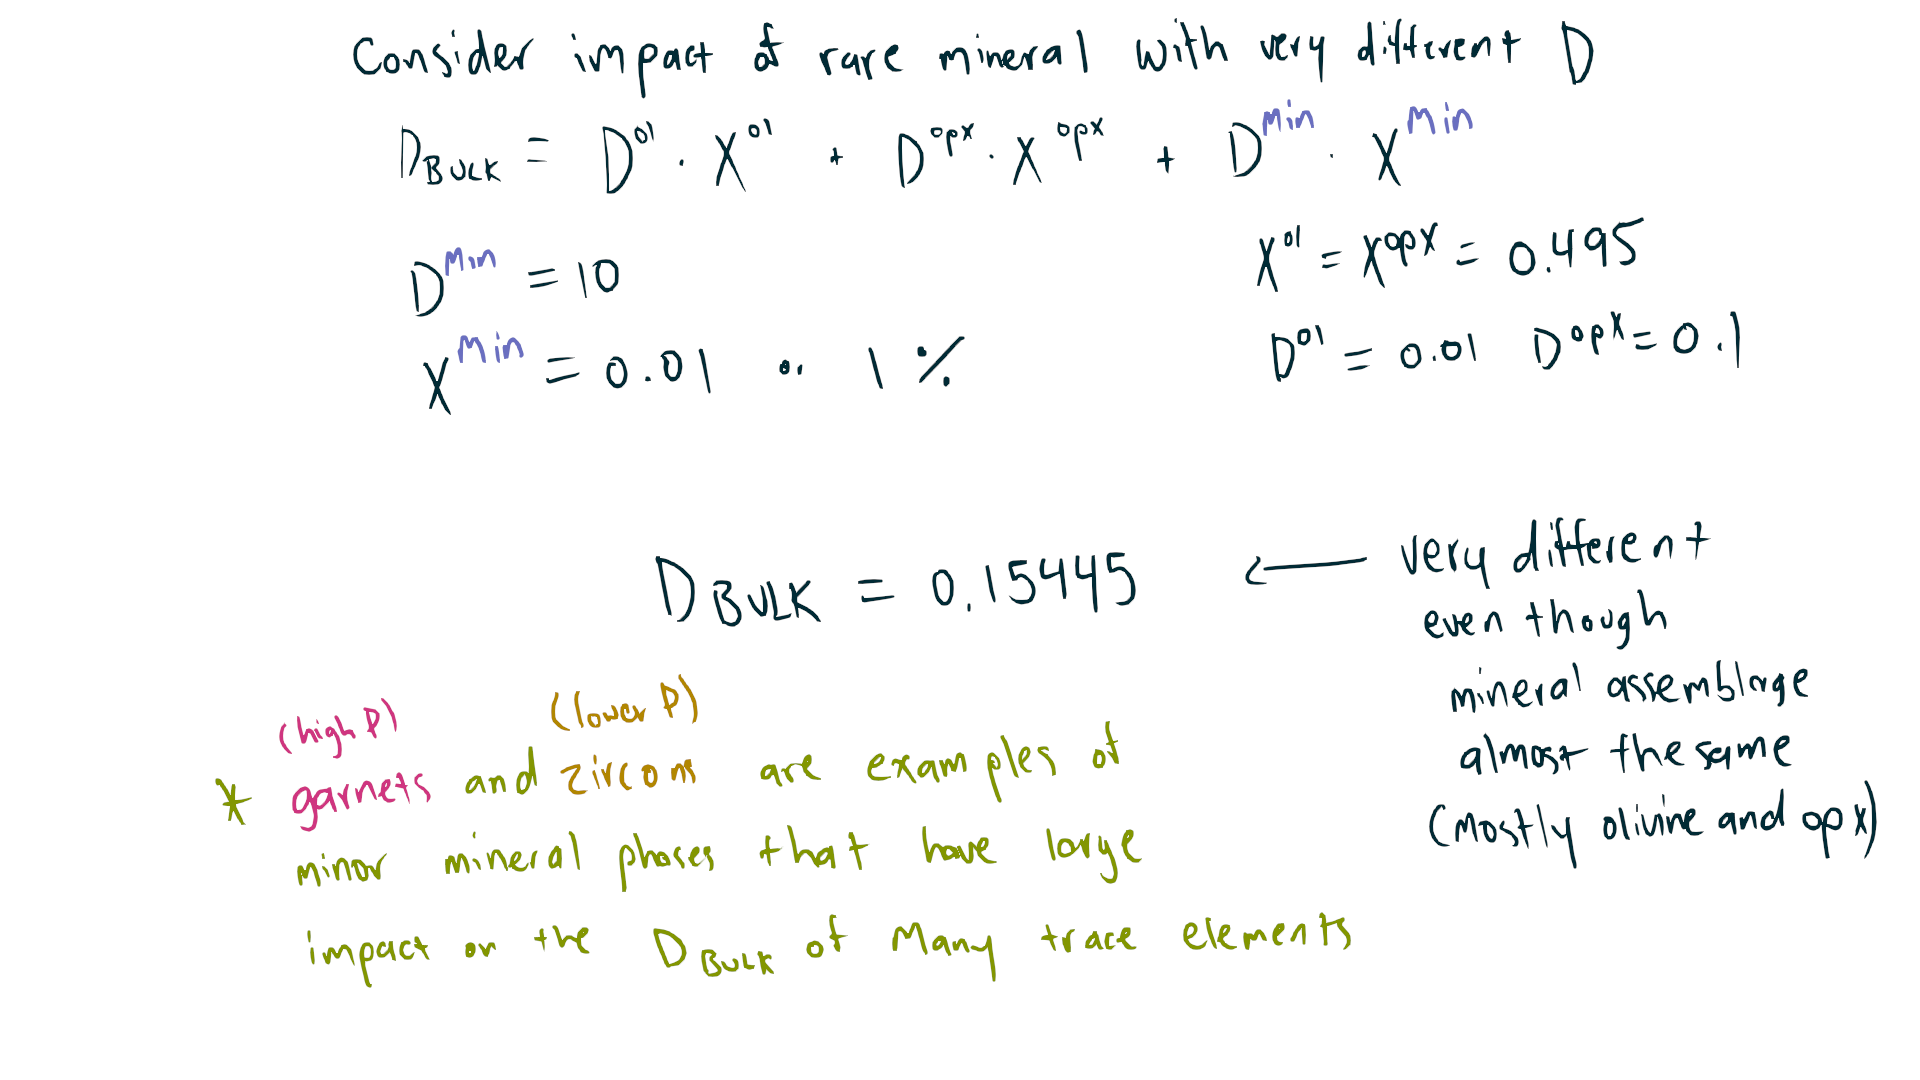 Consider impact of rare mineral with very different D
D_BULK = D^ol · X^ol + D^opx · X^opx + D^Min · X^Min
D^Min = 10
X^Min = 0.01 or 1 %
X^ol = X^opx = 0.495
D^ol = 0.01 D^opx = 0.1
D_BULK = 0.15445
← very different
even though
mineral assemblage
almost the same
(mostly olivine and opx)
(high P) (lower P)
* garnets and zircons are examples of
minor mineral phases that have large
impact on the D_BULK of many trace elements